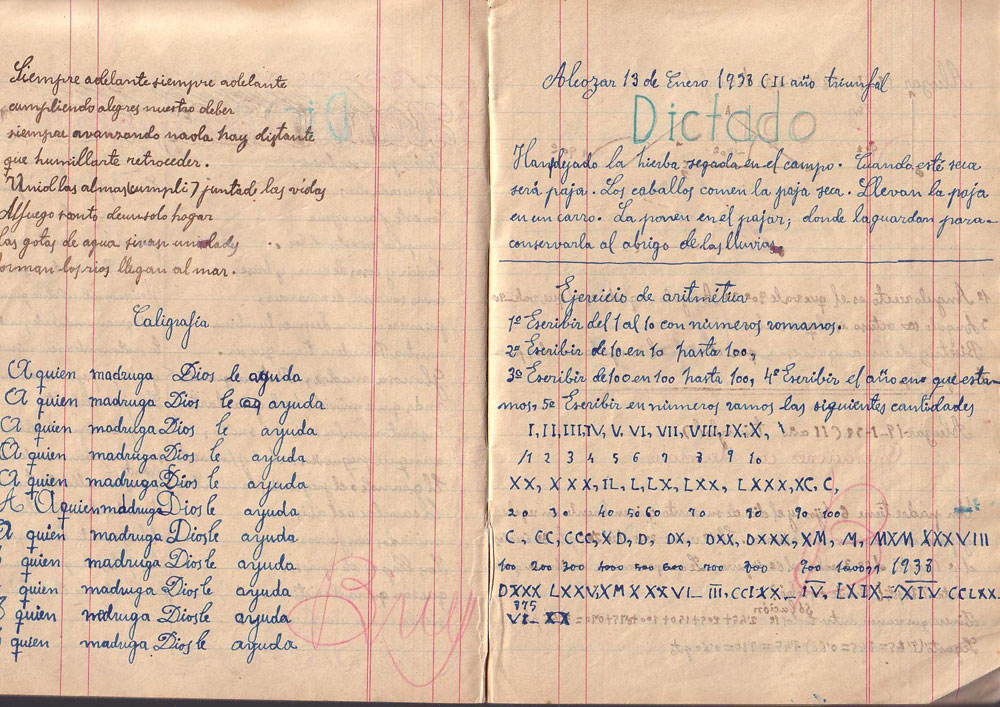 Siempre adelante siempre adelante
cumpliendo alegres nuestro deber
siempre avanzando nada hay distante
que humillante retroceder.
Unid las almas (cumpli) juntad las vidas
Al fuego santo de un solo hogar
las gotas de agua si van unidas
forman los rios llegan al mar.
Caligrafía
A quien madruga Dios le ayuda
A quien madruga Dios le ayuda
A quien madruga Dios le ayuda
A quien madruga Dios le ayuda
A quien madruga Dios le ayuda
A A quien madruga Dios le ayuda
A quien madruga Dios le ayuda
quien madruga Dios le ayuda
quien madruga Dios le ayuda
quien madruga Dios le ayuda
quien madruga Dios le ayuda
Alcozar 13 de Enero 1938 (II año triunfal
Dictado
Han dejado la hierba segada en el campo. Cuando esté seca
será paja. Los caballos comen la paja seca. Llevan la paja
en un carro. La ponen en el pajar; donde la guardan para
conservarla al abrigo de las lluvias
Ejercicio de aritmética
1º Escribir del 1 al 10 con números romanos.
2º Escribir de 10 en 10 hasta 100,
3º Escribir de 100 en 100 hasta 100, 4º Escribir el año en que esta-
mos, 5º Escribir en números ramos las siguientes cantidades
I, II, III, IV, V, VI, VII, VIII, IX, X,
1 2 3 4 5 6 7 8 9 10
XX, XXX, IL, L, LX, LXX, LXXX, XC, C,
20 30 40 50 60 70 80 90 100
C, CC, CCC, XD, D, DX, DXX, DXXX, XM, M, MXM XXXVIII
100 200 300 700 800 900 1938
DXXX LXXV, XM XXXVI_ III, CCIXX_ IV, LXIX_ XIV CCLXX_
975
VI_ XX